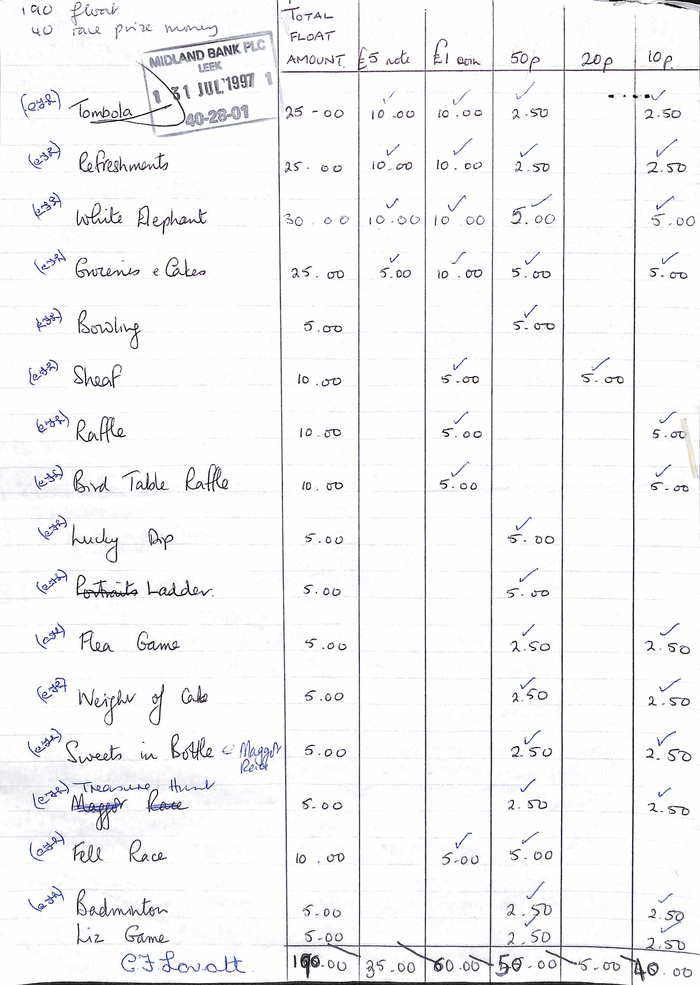 190 float
40 race prize money
TOTAL FLOAT AMOUNT. £5 note £1 coin 50p 20p 10p.
MIDLAND BANK PLC
LEEK
1 31 JUL 1997 1
40-28-01
Tombola 25-00 10.00 10.00 2.50 2.50
Refreshments 25.00 10.00 10.00 2.50 2.50
White Elephant 30.00 10.00 10.00 5.00 5.00
Groceries & Cakes 25.00 5.00 10.00 5.00 5.00
Bowling 5.00 5.00
Sheaf 10.00 5.00 5.00
Raffle 10.00 5.00 5.00
Bird Table Raffle 10.00 5.00 5.00
Lucky Dip 5.00 5.00
Portraits Ladder. 5.00 5.00
Flea Game 5.00 2.50 2.50
Weight of Cake 5.00 2.50 2.50
Sweets in Bottle & Maggot Race 5.00 2.50 2.50
Treasure Hunt
Maggot Race 5.00 2.50 2.50
Fell Race 10.00 5.00 5.00
Badminton 5.00 2.50 2.50
Liz Game 5.00 2.50 2.50
C F Lovatt. 190.00 35.00 60.00 50.00 5.00 40.00